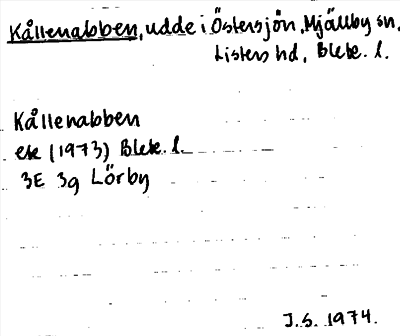 Kållenabben, udde i Östersjön, Mjällby sn,
Listers hd, Blek. l.
Kållenabben
ek (1973) Blek. l.
3E 3g Lörby
J.S. 1974.